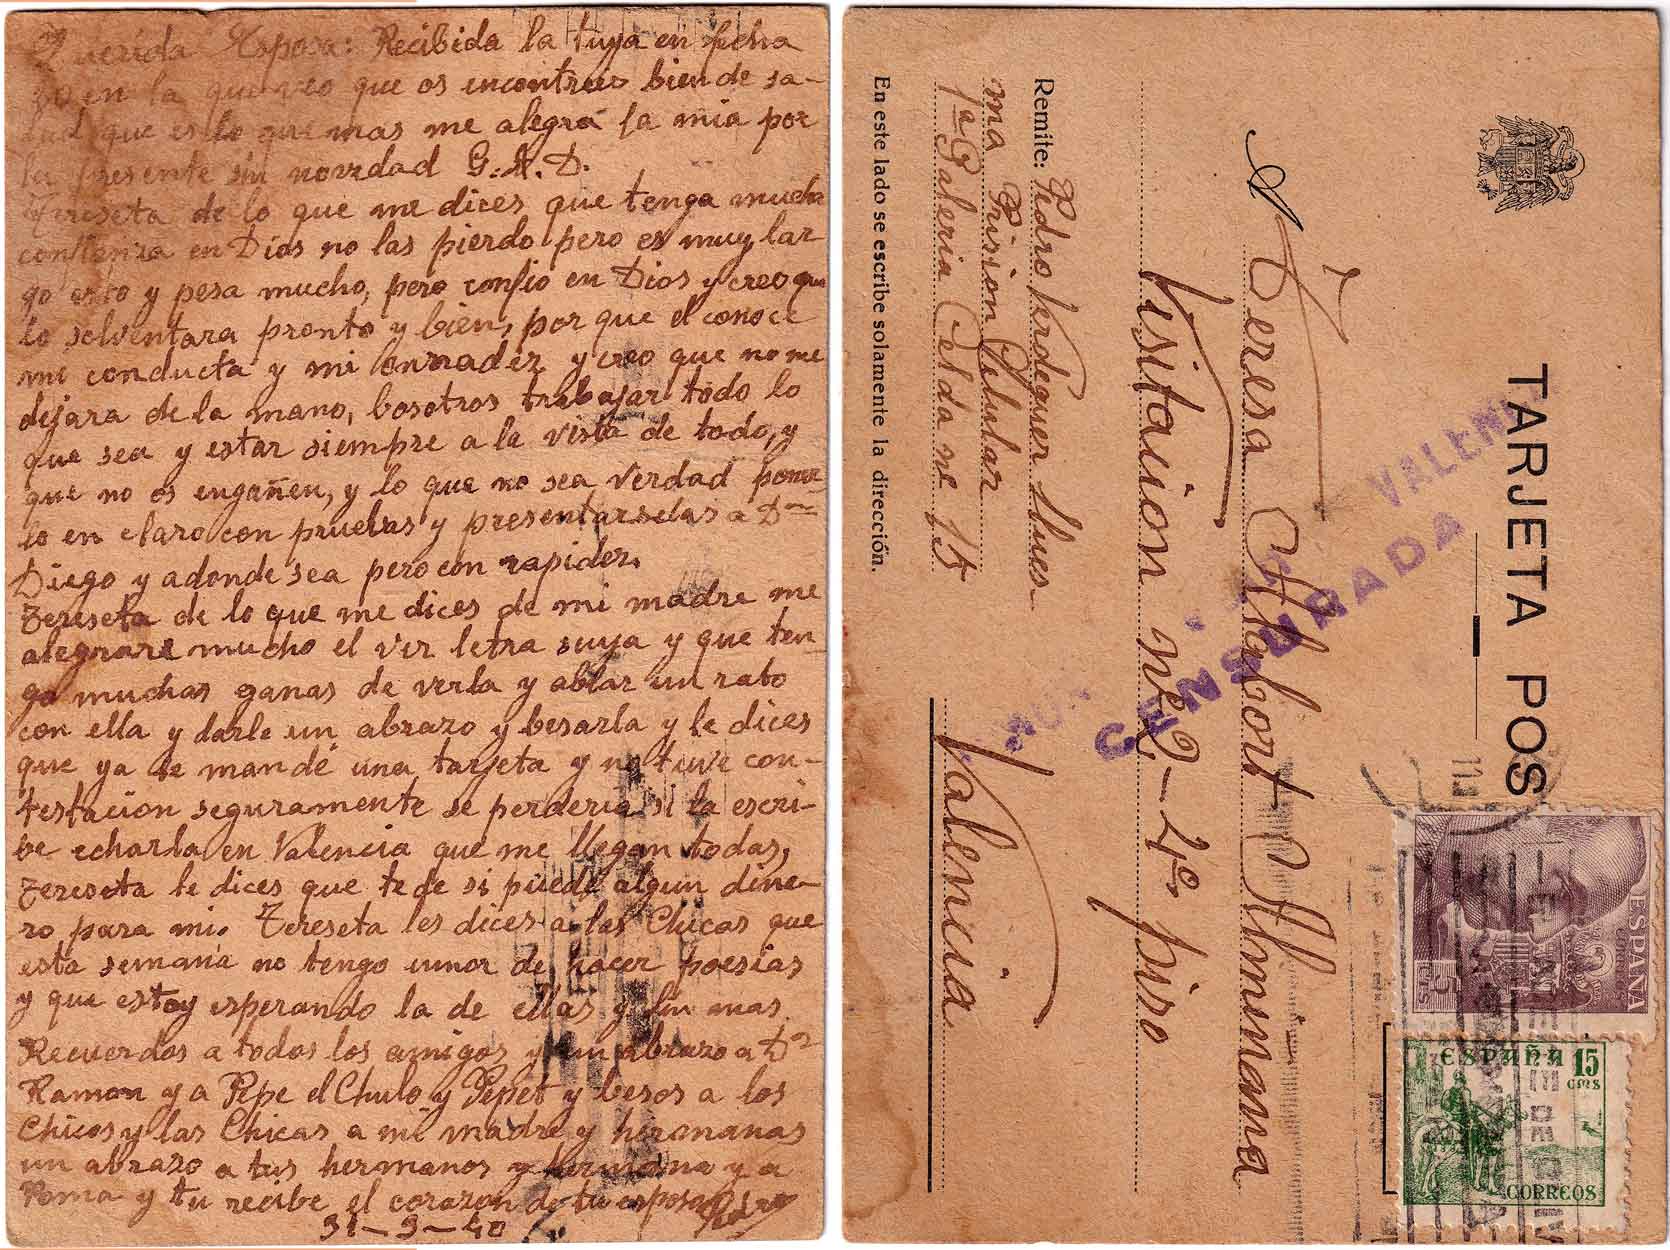 Querida Esposa: Recibida la tuya en fecha
30 en la que veo que os encontrais bien de sa-
lud que es lo que mas me alegra la mia por
la presente sin novedad G.A.D.
Tereseta de lo que me dices que tenga mucha
confianza en Dios no las pierdo pero es muy lar
go esto y pesa mucho, pero confio en Dios y creo que
lo solventara pronto y bien, por que el conoce
mi conducta y mi onradez y creo que no me
dejara de la mano, bosotros trabajar todo lo
que sea y estar siempre a la vista de todo, y
que no os engañen, y lo que no sea verdad poner
lo en claro con pruebas y presentarselas a D
Diego y adonde sea pero con rapidez.
Tereseta de lo que me dices de mi madre me
alegrare mucho el ver letra suya y que ten-
go muchas ganas de verla y ablar un rato
con ella y darle un abrazo y besarla y le dices
que ya le mandé una tarjeta y no tuve con-
testacion seguramente se perderia si la escri-
be echarla en Valencia que me llegan todas,
Tereseta le dices que te de si puede algun dine-
ro para mi. Tereseta les dices a las Chicas que
esta semana no tengo umor de hacer poesias
y que estoy esperando la de ellas y sin mas
Recuerdos a todos los amigos y un abrazo a Dn
Ramon y a Pepe el Chulo y Pepet y besos a los
Chicos y las Chicas a mi madre y hermanas
un abrazo a tus hermanos y hermana y a
Roma y tu recibe el corazon de tu esposo Pedro
31-3-40
TARJETA POS
A Teresa Alaport Almenana
Visitacion nº 2-4º piso
Valencia
VALENCIA
CENSURADA
Remite: Pedro Verdeguer Lluesma
Prision Celular
1ª Galeria Celda nº 15
En este lado se escribe solamente la dirección.
ESPAÑA
CORREOS
PTS
ESPAÑA 15
CTMS
CORREOS